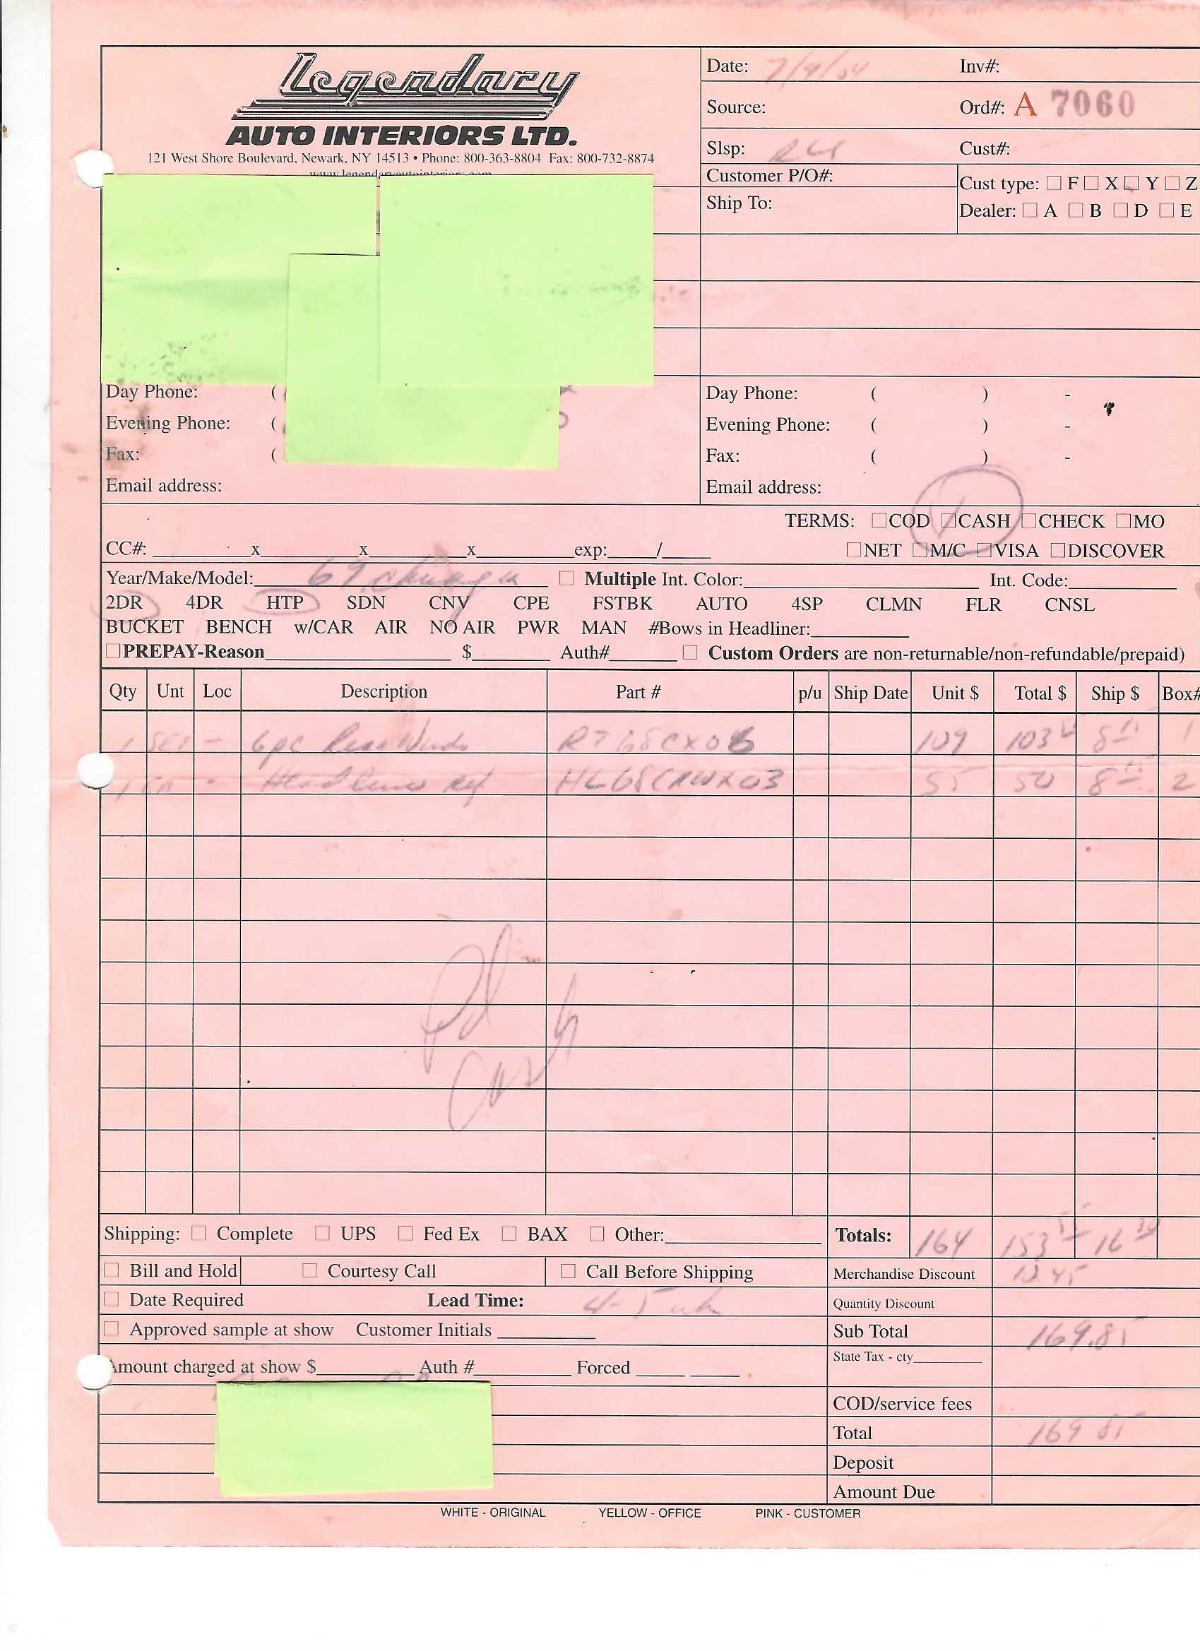 Legendary
AUTO INTERIORS LTD.
121 West Shore Boulevard, Newark, NY 14513 • Phone: 800-363-8804 Fax: 800-732-8874
www.legendaryautointeriors.com
Date: 7/9/04 Inv#:
Source: Ord#: A 7060
Slsp: Cust#:
Customer P/O#:
Cust type: □ F □ X □ Y □ Z
Ship To:
Dealer: □ A □ B □ D □ E
Day Phone: (
Evening Phone: (
Fax: (
Email address:
Day Phone: ( ) -
Evening Phone: ( ) -
Fax: ( ) -
Email address:
TERMS: □COD □CASH □CHECK □MO
CC#: ________x________x________x________exp:____/____ □NET □M/C □VISA □DISCOVER
Year/Make/Model: 69 □ Multiple Int. Color:________ Int. Code:________
2DR 4DR HTP SDN CNV CPE FSTBK AUTO 4SP CLMN FLR CNSL
BUCKET BENCH w/CAR AIR NO AIR PWR MAN #Bows in Headliner:________
□PREPAY-Reason________ $______ Auth#______ □ Custom Orders are non-returnable/non-refundable/prepaid)
Qty Unt Loc Description Part # p/u Ship Date Unit $ Total $ Ship $ Box#
1 SET - 6pc 109 103 8 1
1 - Headliner 55 50 8 2
Pd
Cash
Shipping: □ Complete □ UPS □ Fed Ex □ BAX □ Other:________
Totals: 164 153 16
□ Bill and Hold □ Courtesy Call □ Call Before Shipping
Merchandise Discount
□ Date Required Lead Time: 4-5 wk
Quantity Discount
□ Approved sample at show Customer Initials ________
Sub Total 169.85
State Tax - cty________
Amount charged at show $________ Auth #________ Forced ____ ____
COD/service fees
Total 169 85
Deposit
Amount Due
WHITE - ORIGINAL YELLOW - OFFICE PINK - CUSTOMER